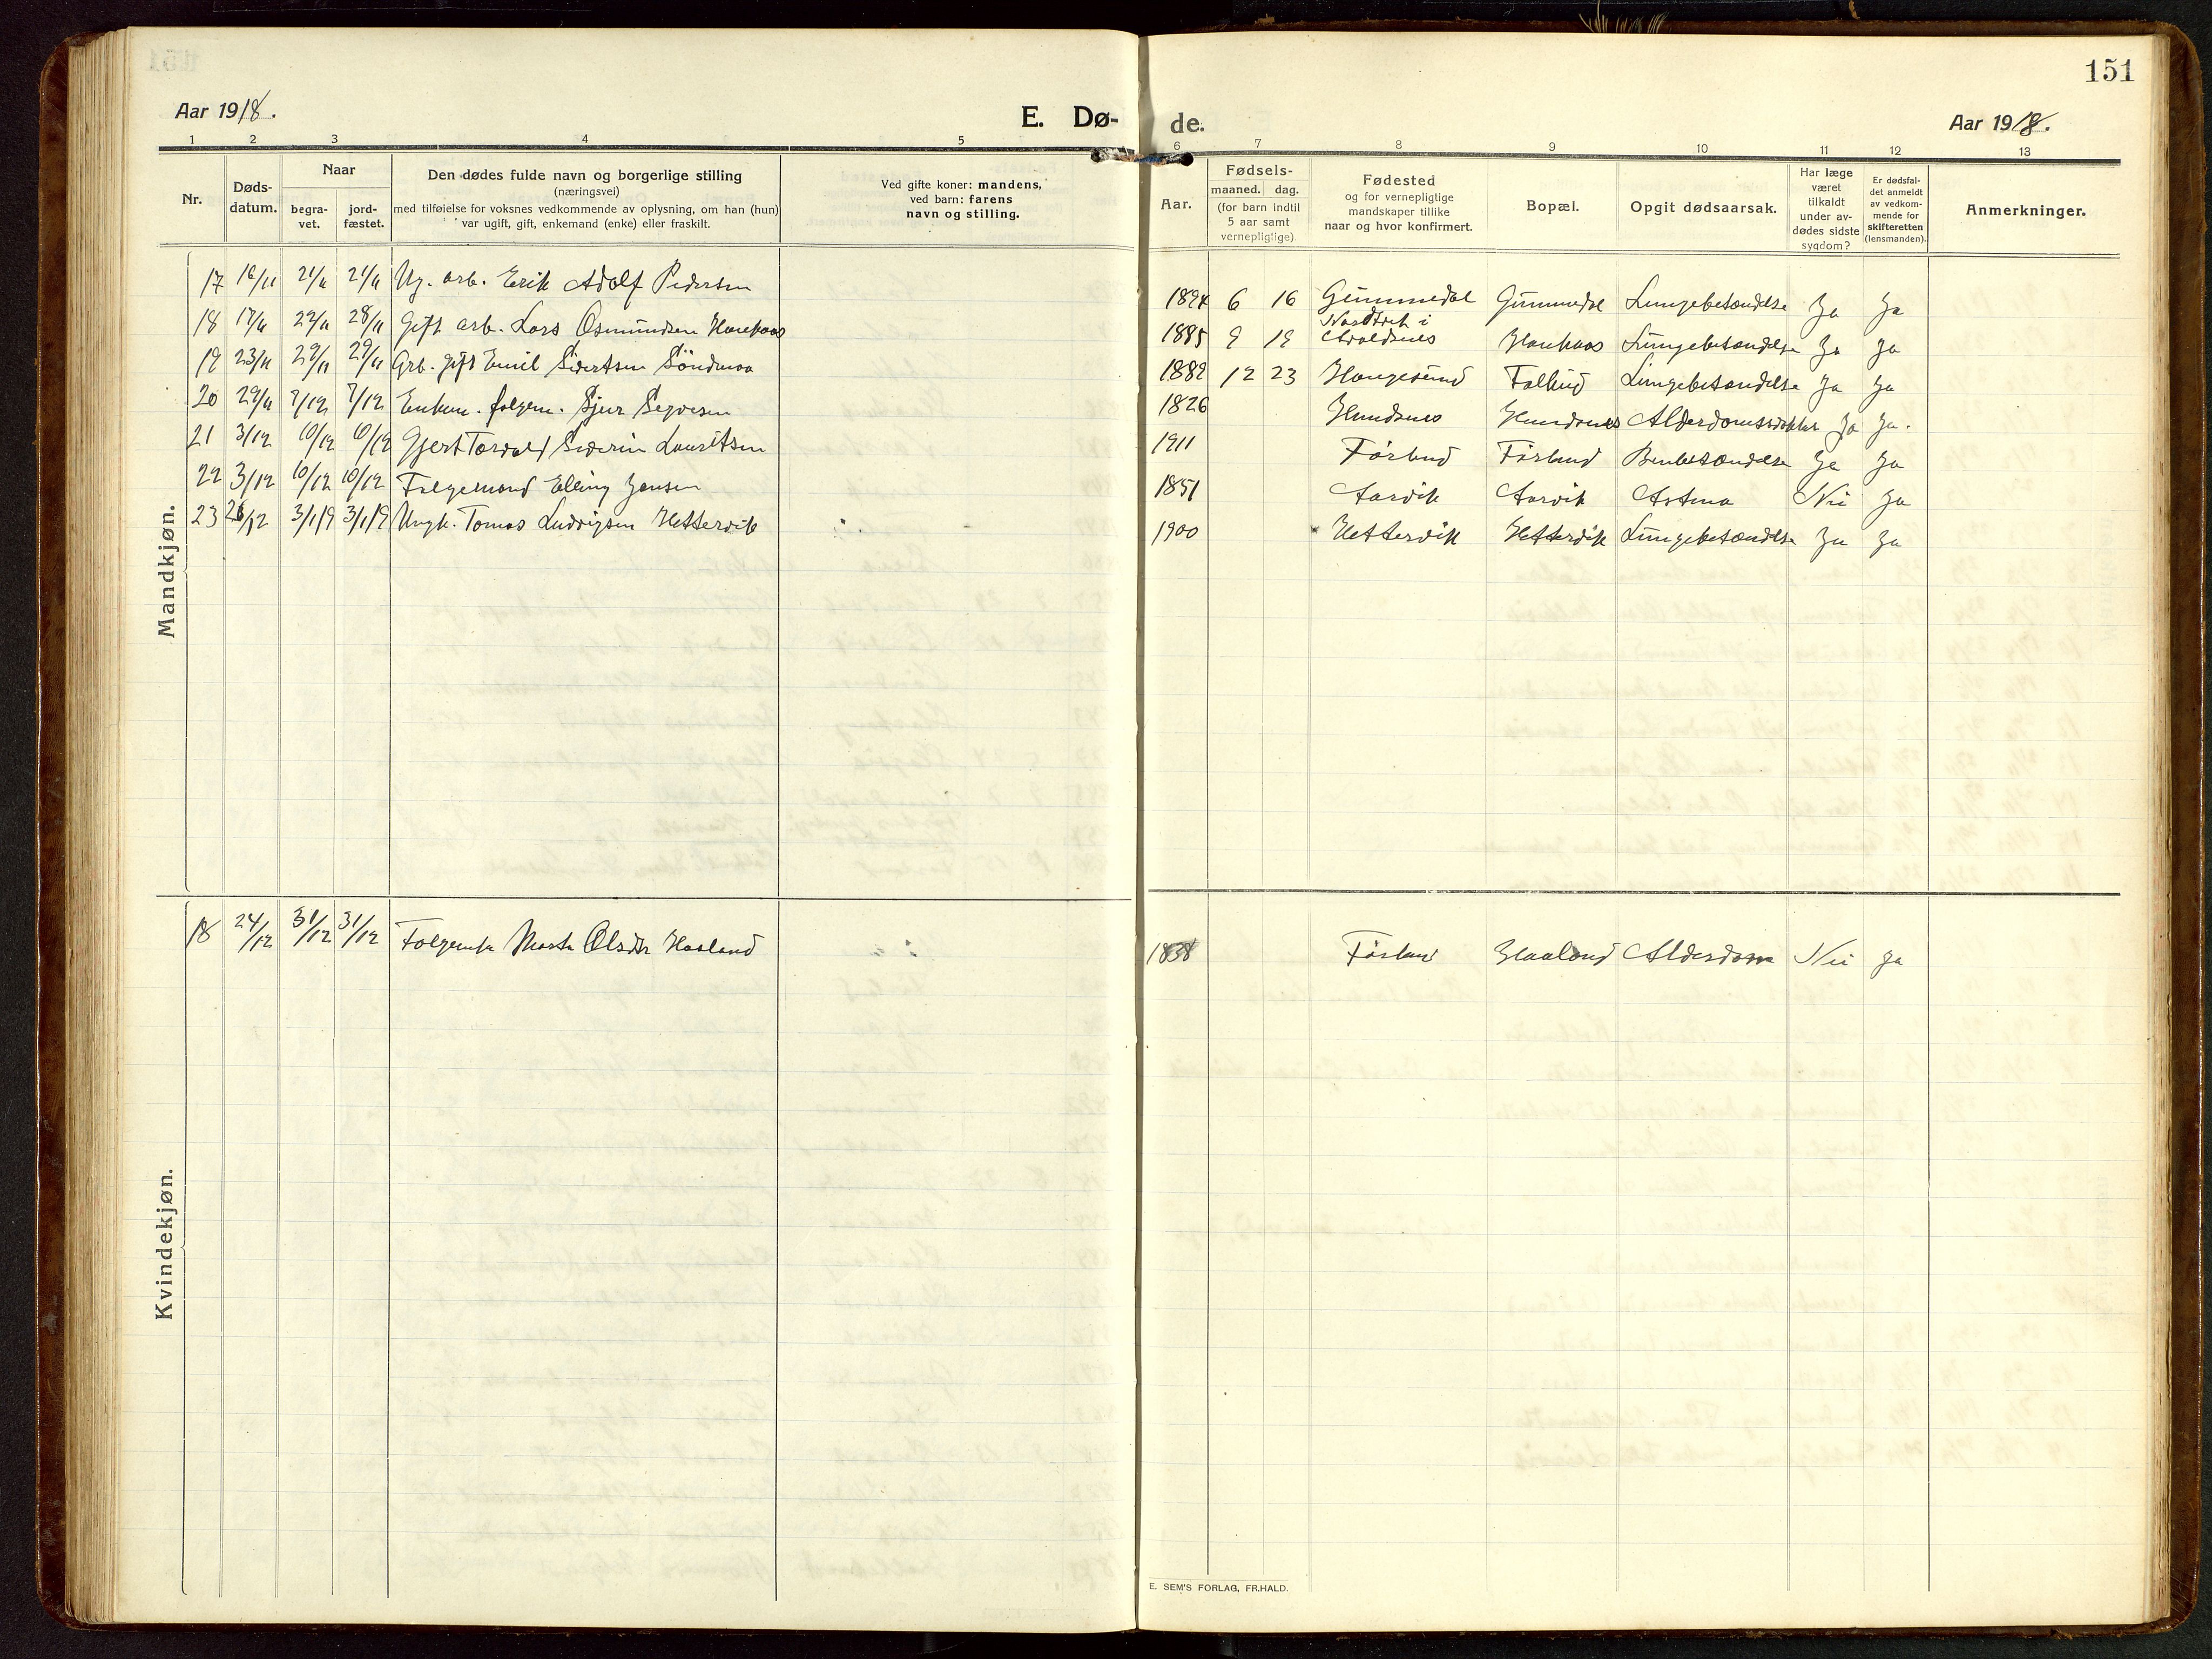 151
Aar 1918.
E. Dø-
de.
Aar 1918.
1 2 3 4 5 6 7 8 9 10 11 12 13
Nr.
Døds-
datum.
Naar
begra-
vet.
jord-
fæstet.
Den dødes fulde navn og borgerlige stilling
(næringsvei)
med tilføielse for voksnes vedkommende av oplysning, om han (hun)
var ugift, gift, enkemand (enke) eller fraskilt.
Ved gifte koner: mandens,
ved barn: farens
navn og stilling.
Aar.
Fødsels-
maaned. dag.
(for barn indtil
5 aar samt
vernepligtige)
Fødested
og for vernepligtige
mandskaper tillike
naar og hvor konfirmert.
Bopæl.
Opgit dødsaarsak.
Har læge
været
tilkaldt
under av-
dødes sidste
sygdom?
Er dødsfal-
det anmeldt
av vedkom-
mende for
skifteretten
(lensmanden).
Anmerkninger.
Mandkjøn.
17 16/11 21/11 21/11 Ug. arb. Erik Adolf Pedersen 1894 6 16 Gimmedal Gimmedal Lungebetændelse Ja Ja
18 17/11 28/11 Gift arb. Lars Osmundsen 1885 9 19 Avaldsnes Lungebetændelse Ja Ja
19 23/11 29/11 29/11 Arb. gift Emil Sivertsen Söndenaa 1882 12 23 Haugesund Lungebetændelse Ja Ja
20 29/11 7/12 7/12 Enkem. folgem. Sjur 1826 Hundsnes Hundsnes Ja Ja.
21 3/12 10/12 10/12 Gjert Torvald Severin Lauritsen 1911 Førland Førland Benbetændelse Ja Ja
22 3/12 10/12 10/12 Folgemand Elling Jensen 1851 Aarvik Aarvik Astma Nei Ja
23 26/12 3/1/19 3/1/19 Ungk. Tomas Ludvigsen Hettervik 1900 Hettervik Hettervik Lungebetændelse Ja Ja
Kvindekjøn.
18 24/12 31/12 31/12 Marta Olsdtr Haaland 1838 Førland Haaland Alderdom Nei Ja
E. SEM'S FORLAG, FR.HALD.